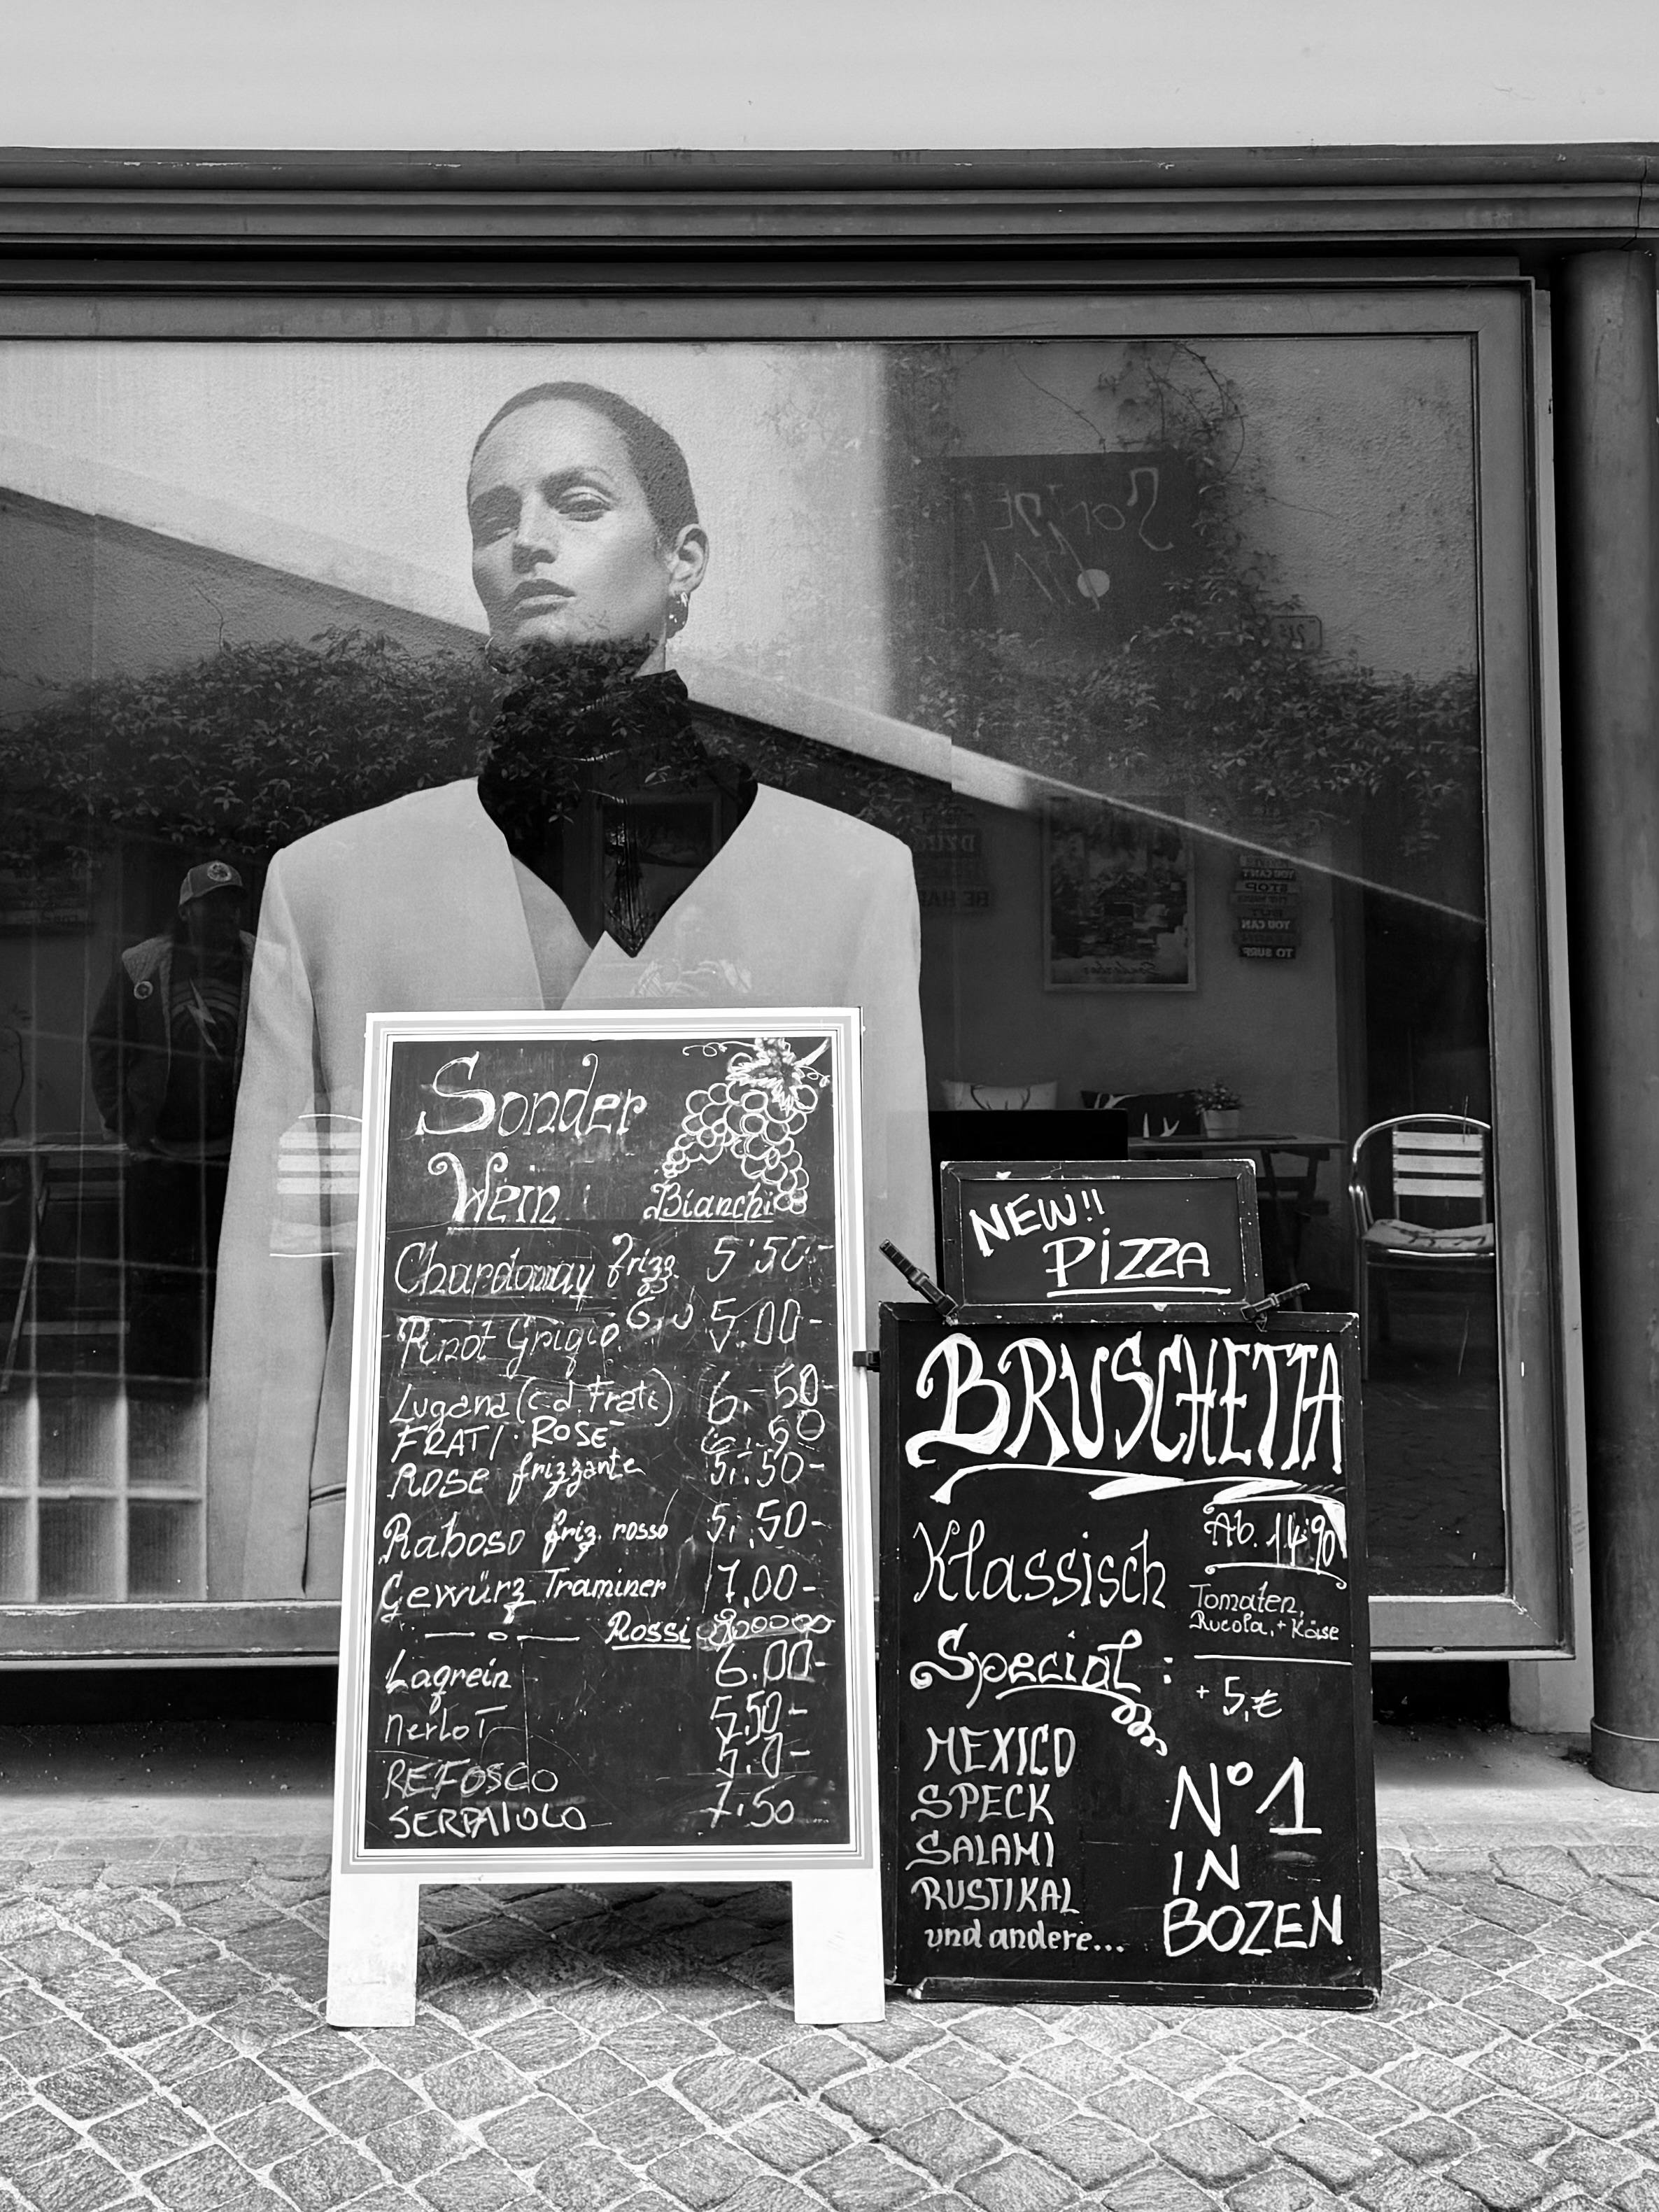 Sonder
Wein:
Bianchi
Chardonnay frizz 5'50.-
Pinot Grigio 5.00-
Lugana (c.d. Frati) 6.-50-
FRATI. ROSÉ
ROSE frizzante 5,.50-
Raboso friz. rosso 5,.50-
Gewürz Traminer 7.00-
Rossi
Lagrein 6.00-
Merlot 5.50-
REFOSCO
SERPAIOLO 7.50
NEW!!
PIZZA
BRUSCHETTA
Klassisch
Ab. 14'90
Tomaten,
Rucola, + Käse
Special:
+ 5,€
MEXICO
SPECK
SALAMI
RUSTIKAL
und andere...
N°1
IN
BOZEN